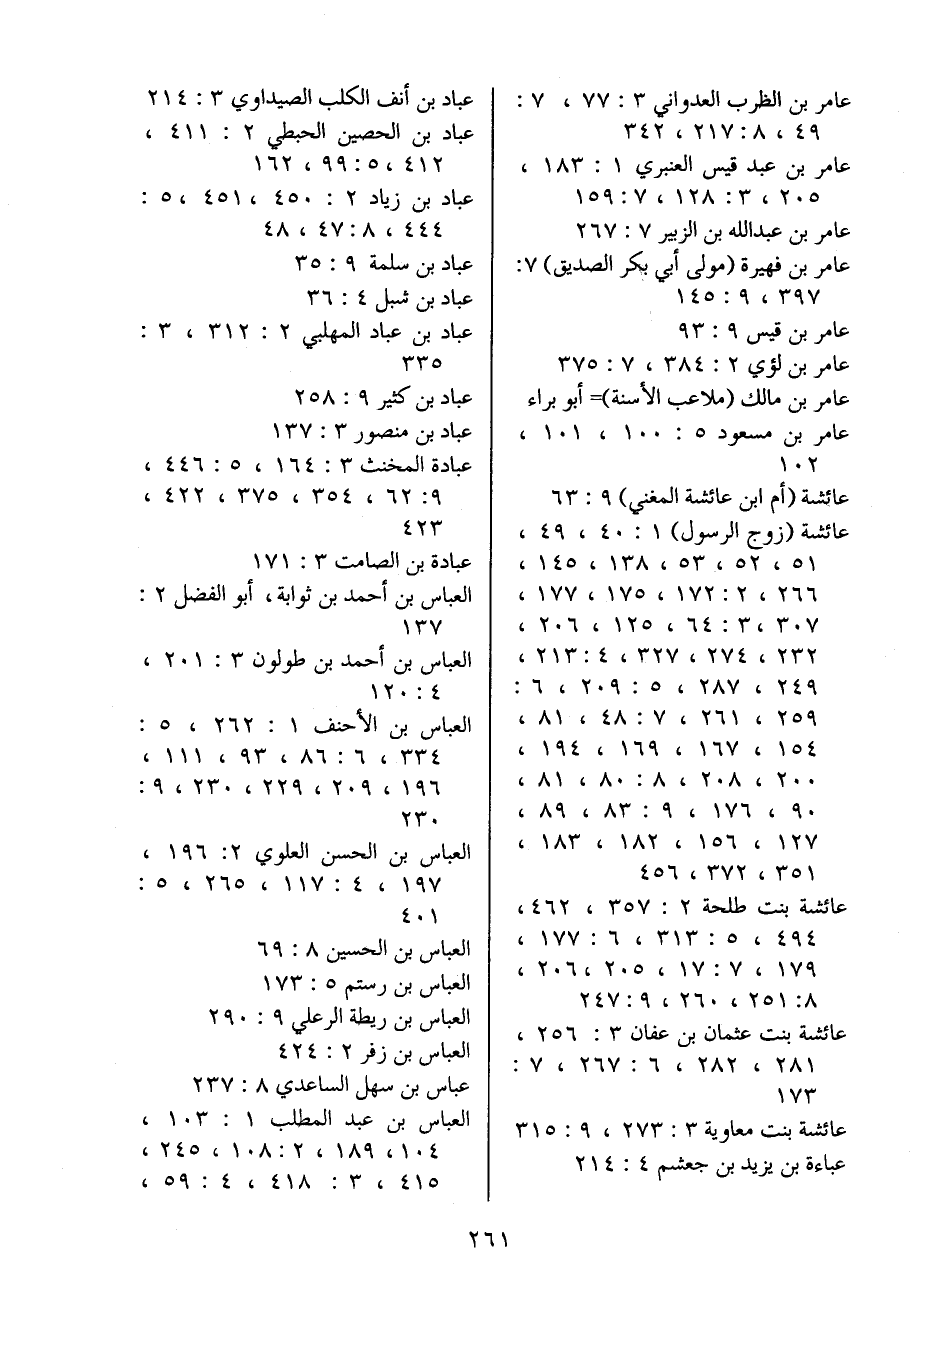 عامر بن الظرب العدواني ٣ : ٧٧ ، ٧ :
٤٩ ، ٨ : ٢١٧ ، ٣٤٢
عامر بن عبد قيس العنبري ١ : ١٨٣ ،
٢٠٥ ، ٣ : ١٢٨ ، ٧ : ١٥٩
عامر بن عبدالله بن الزبير ٧ : ٢٦٧
عامر بن فهيرة (مولى أبي بكر الصديق) ٧:
٣٩٧ ، ٩ : ١٤٥
عامر بن قيس ٩ : ٩٣
عامر بن لؤي ٢ : ٣٨٤ ، ٧ : ٣٧٥
عامر بن مالك (ملاعب الأسنة)= أبو براء
عامر بن مسعود ٥ : ١٠٠ ، ١٠١ ،
١٠٢
عائشة (أم ابن عائشة المغني) ٩ : ٦٣
عائشة (زوج الرسول) ١ : ٤٠ ، ٤٩ ،
٥١ ، ٥٢ ، ٥٣ ، ١٣٨ ، ١٤٥ ،
٢٦٦ ، ٢ : ١٧٢ ، ١٧٥ ، ١٧٧ ،
٣٠٧ ، ٣ : ٦٤ ، ١٢٥ ، ٢٠٦ ،
٢٣٢ ، ٢٧٤ ، ٣٢٧ ، ٤ : ٢١٣ ،
٢٤٩ ، ٢٨٧ ، ٥ : ٢٠٩ ، ٦ :
٢٥٩ ، ٢٦١ ، ٧ : ٤٨ ، ٨١ ،
١٥٤ ، ١٦٧ ، ١٦٩ ، ١٩٤ ،
٢٠٠ ، ٢٠٨ ، ٨ : ٨٠ ، ٨١ ،
٩٠ ، ١٧٦ ، ٩ : ٨٣ ، ٨٩ ،
١٢٧ ، ١٥٦ ، ١٨٢ ، ١٨٣ ،
٣٥١ ، ٣٧٢ ، ٤٥٦
عائشة بنت طلحة ٢ : ٣٥٧ ، ٤٦٢ ،
٤٩٤ ، ٥ : ٣١٣ ، ٦ : ١٧٧ ،
١٧٩ ، ٧ : ١٧ ، ٢٠٥ ، ٢٠٦ ،
٨ : ٢٥١ ، ٢٦٠ ، ٩ : ٢٤٧
عائشة بنت عثمان بن عفان ٣ : ٢٥٦ ،
٢٨١ ، ٢٨٢ ، ٦ : ٢٦٧ ، ٧ :
١٧٣
عائشة بنت معاوية ٣ : ٢٧٣ ، ٩ : ٣١٥
عباءة بن يزيد بن جعشم ٤ : ٢١٤
عباد بن أنف الكلب الصيداوي ٣ : ٢١٤
عباد بن الحصين الحبطي ٢ : ٤١١ ،
٤١٢ ، ٥ : ٩٩ ، ١٦٢
عباد بن زياد ٢ : ٤٥٠ ، ٤٥١ ، ٥ :
٤٤٤ ، ٨ : ٤٧ ، ٤٨
عباد بن سلمة ٩ : ٣٥
عباد بن شبل ٤ : ٣٦
عباد بن عباد المهلبي ٢ : ٣١٢ ، ٣ :
٣٣٥
عباد بن كثير ٩ : ٢٥٨
عباد بن منصور ٣ : ١٣٧
عبادة المخنث ٣ : ١٦٤ ، ٥ : ٤٤٦ ،
٩ : ٦٢ ، ٣٥٤ ، ٣٧٥ ، ٤٢٢ ،
٤٢٣
عبادة بن الصامت ٣ : ١٧١
العباس بن أحمد بن ثوابة ، أبو الفضل ٢ :
١٣٧
العباس بن أحمد بن طولون ٣ : ٢٠١ ،
٤ : ١٢٠
العباس بن الأحنف ١ : ٢٦٢ ، ٥ :
٣٣٤ ، ٦ : ٨٦ ، ٩٣ ، ١١١ ،
١٩٦ ، ٢٠٩ ، ٢٢٩ ، ٢٣٠ ، ٩ :
٢٣٠
العباس بن الحسن العلوي ٢ : ١٩٦ ،
١٩٧ ، ٤ : ١١٧ ، ٢٦٥ ، ٥ :
٤٠١
العباس بن الحسين ٨ : ٦٩
العباس بن رستم ٥ : ١٧٣
العباس بن ريطة الرعلي ٩ : ٢٩٠
العباس بن زفر ٢ : ٤٢٤
عباس بن سهل الساعدي ٨ : ٢٣٧
العباس بن عبد المطلب ١ : ١٠٣ ،
١٠٤ ، ١٨٩ ، ٢ : ١٠٨ ، ٢٤٥ ،
٤١٥ ، ٣ : ٤١٨ ، ٤ : ٥٩ ،
٢٦١